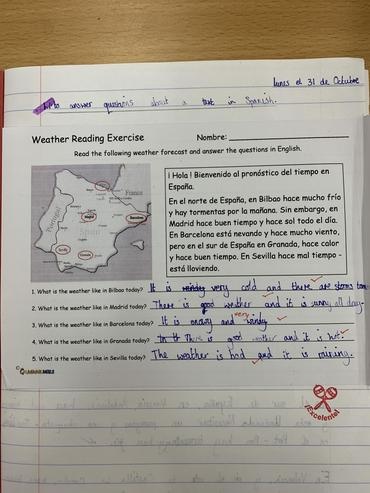 lunes el 31 de Octubre
L.I. to answer questions about a text in Spanish.
Weather Reading Exercise Nombre:
Read the following weather forecast and answer the questions in English.
¡ Hola ! Bienvenido al pronóstico del tiempo en
España.
En el norte de España, en Bilbao hace mucho frío
y hay tormentas por la mañana. Sin embargo, en
Madrid hace buen tiempo y hace sol todo el día.
En Barcelona está nevando y hace mucho viento,
pero en el sur de España en Granada, hace calor
y hace buen tiempo. En Sevilla hace mal tiempo -
está lloviendo.
France
Portugal
Spain
Madrid
Barcelona
Sevilla
Granada
1. What is the weather like in Bilbao today? It is very cold and there are storms
2. What is the weather like in Madrid today? There is good weather and it is sunny all day.
very
3. What is the weather like in Barcelona today? It is snowy and windy
4. What is the weather like in Granada today? There is good weather and it is hot.
5. What is the weather like in Sevilla today? The weather is bad and it is raining.
¡Excelente!